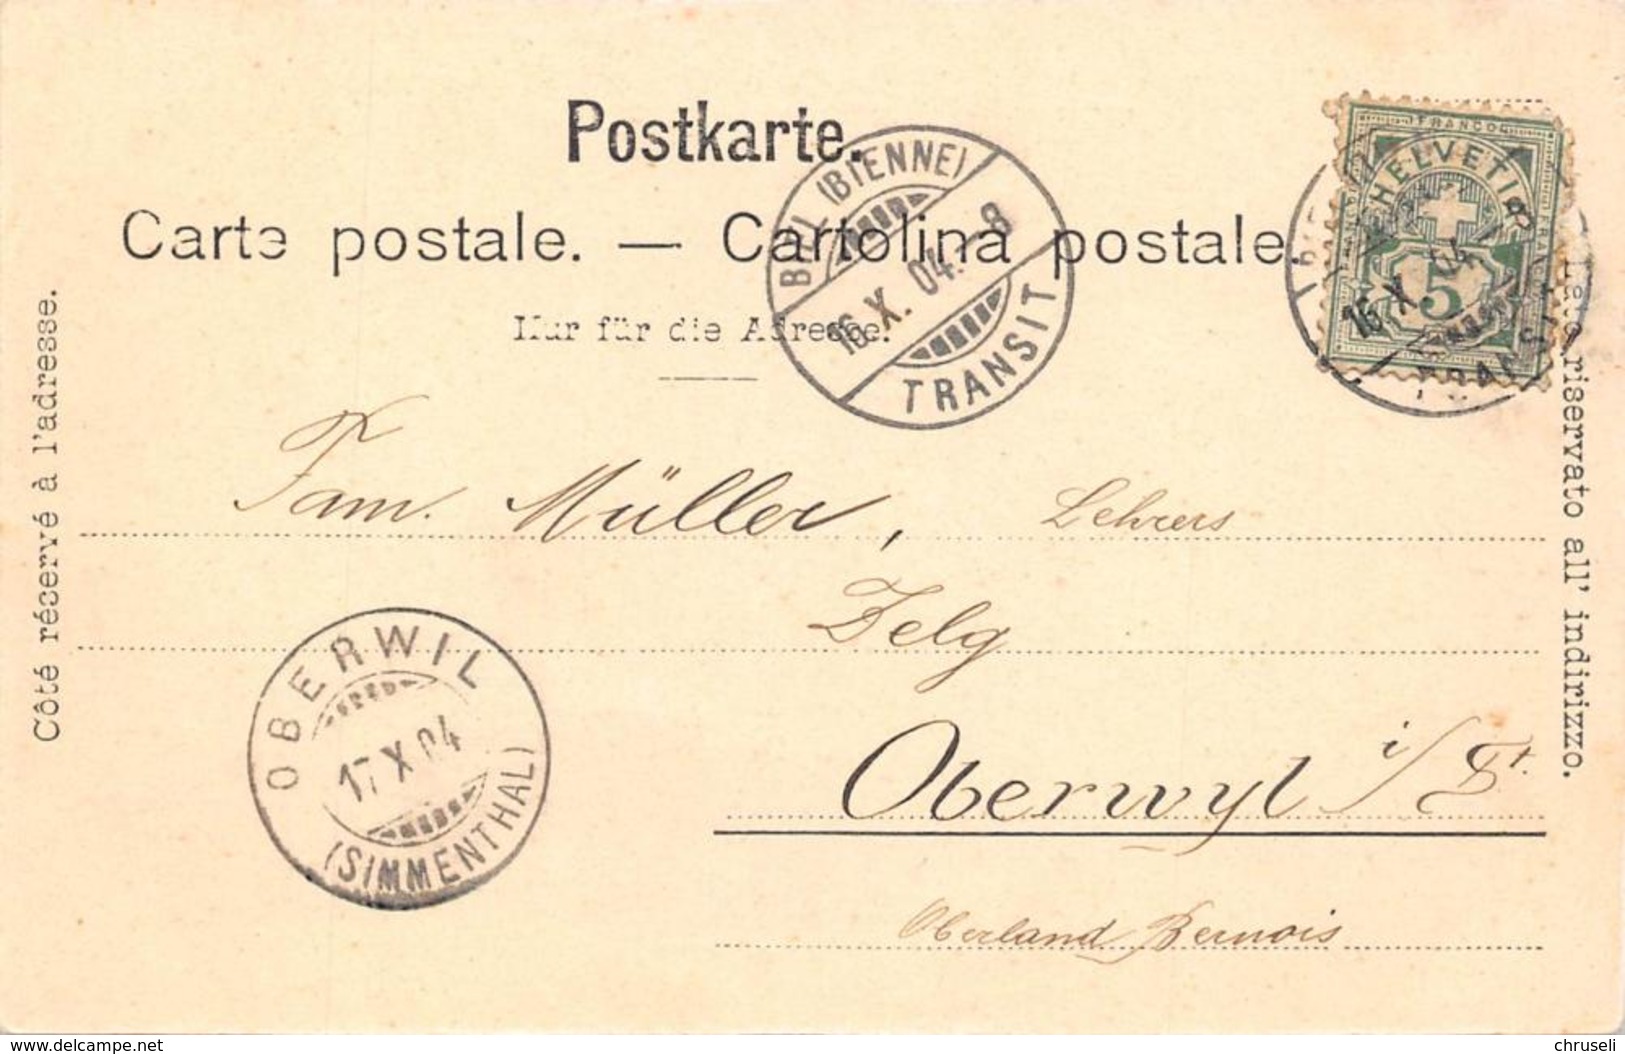 Postkarte.
Carte postale. — Cartolina postale
Nur für die Adresse.
Côté réservé à l'adresse.
Lato riservato all' indirizzo.
BIEL (BIENNE)
16.X.04.-8
TRANSIT
FRANCO
HELVETIA
5
16.X.04.-8
TRANSIT
Fam. Müller, Lehrers
Zelg
Oberwyl i/St.
Oberland Bernois
OBERWIL
17.X.04
(SIMMENTHAL)
www.delcampe.net
chruseli